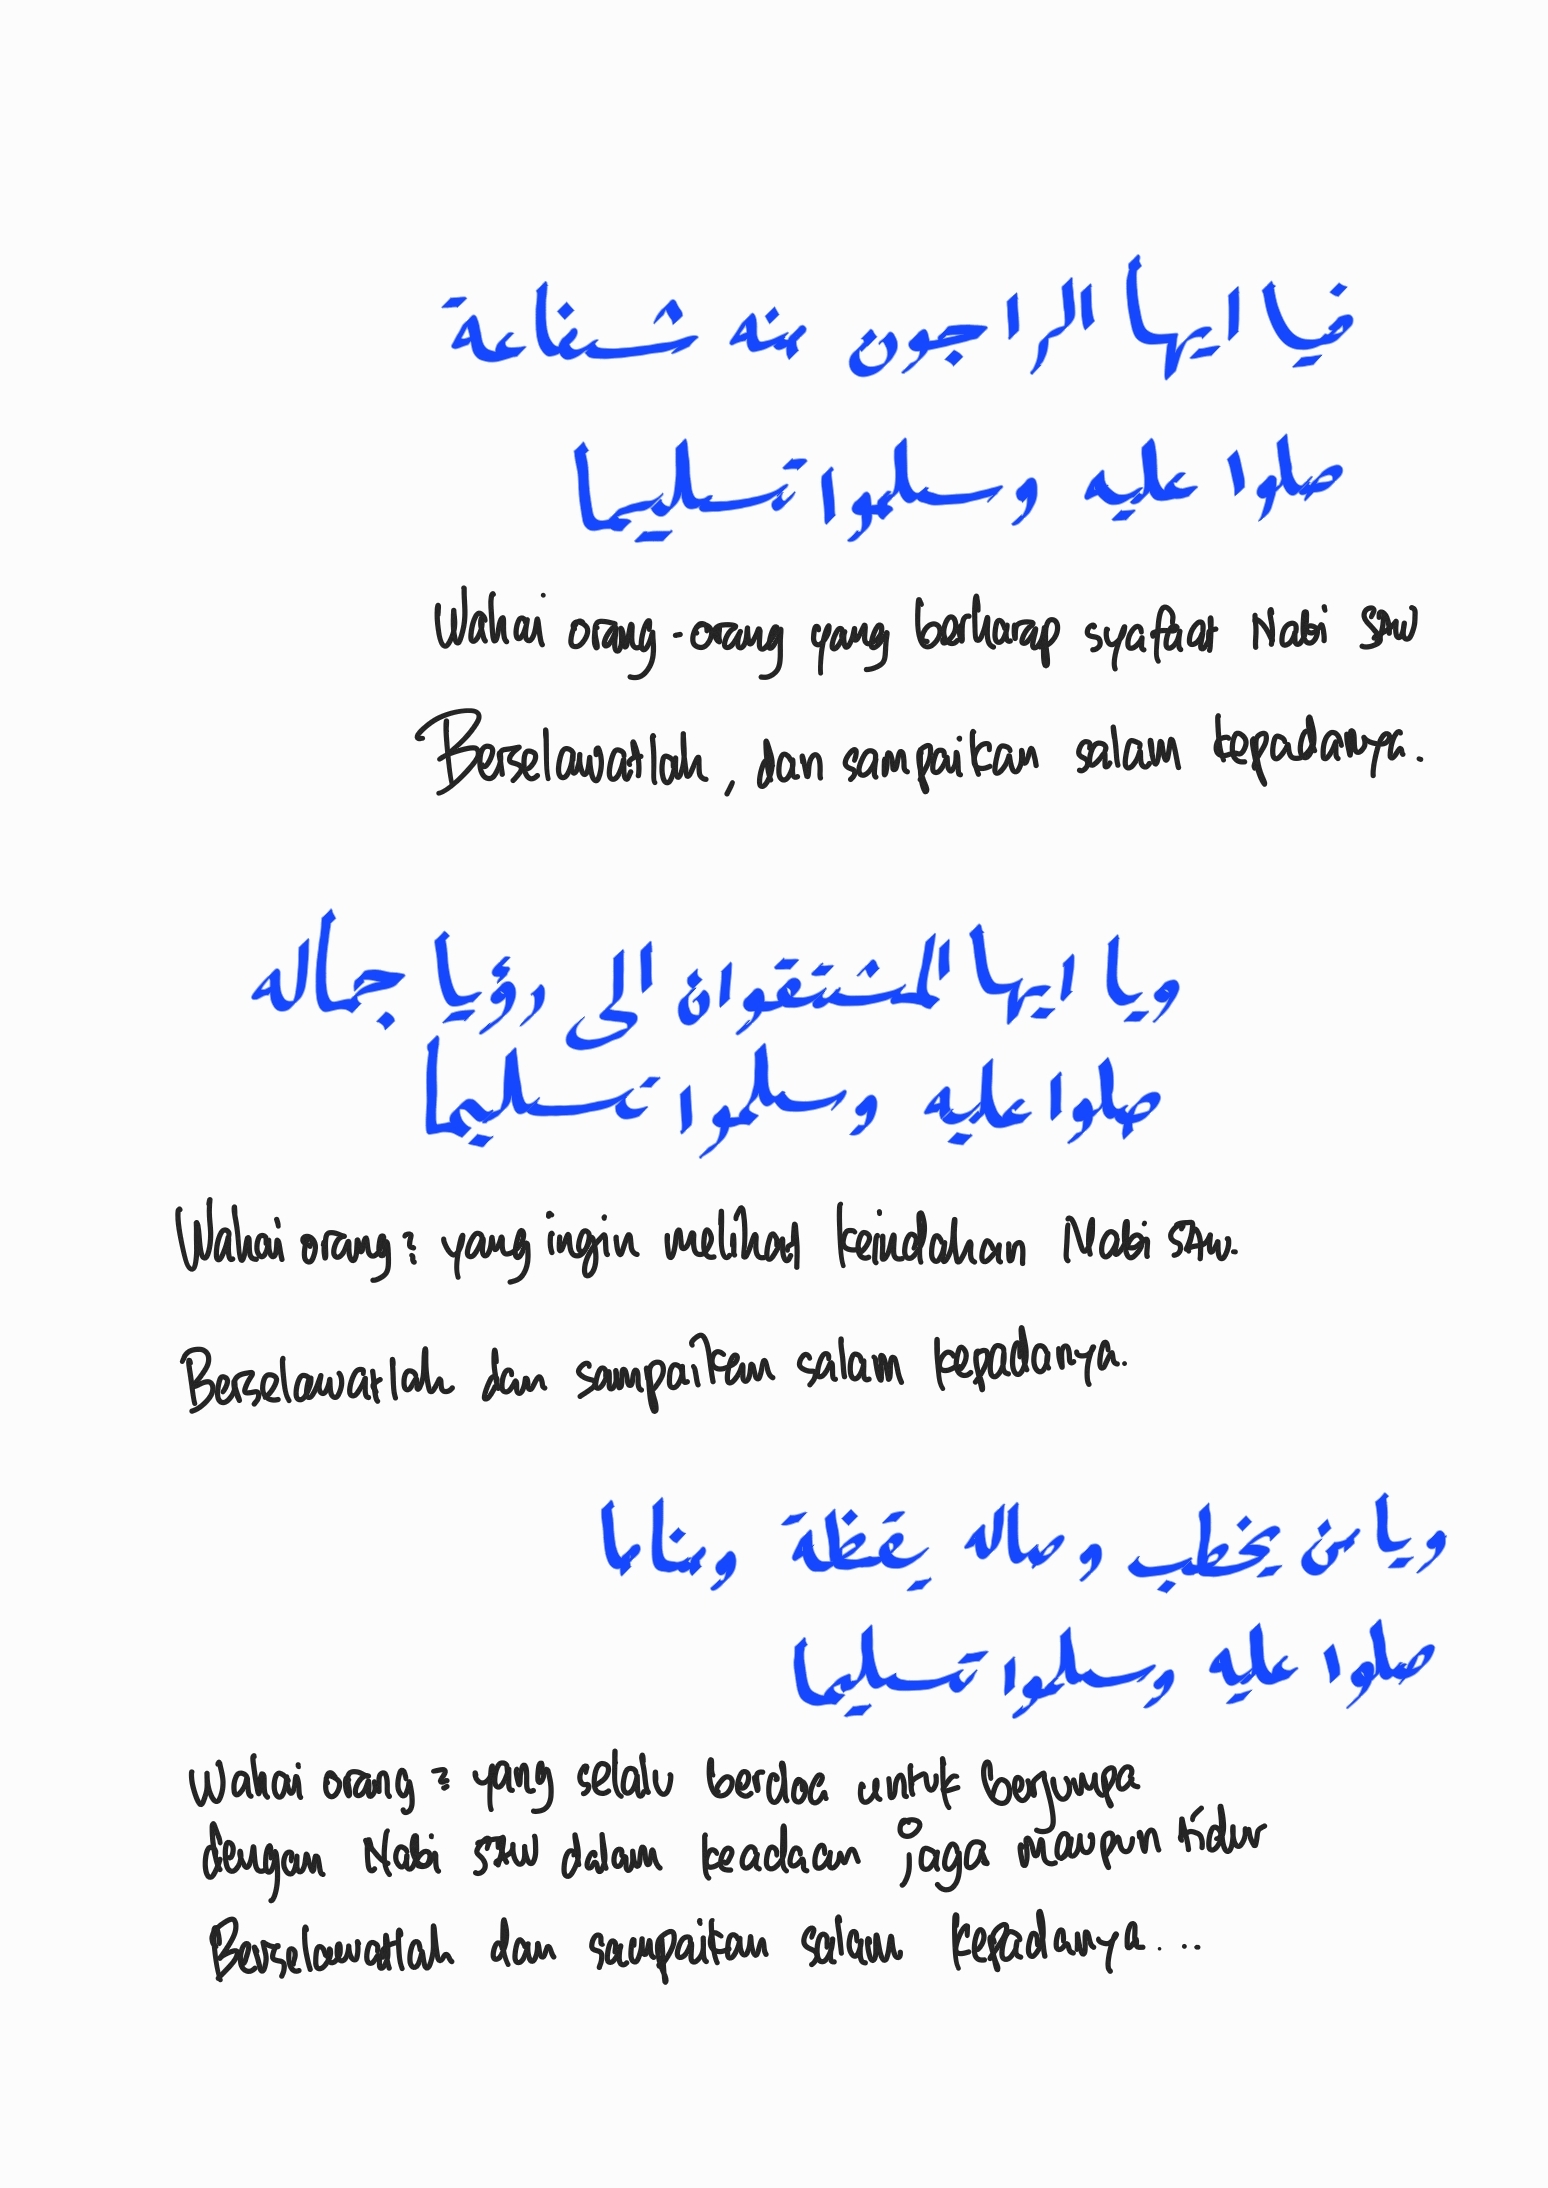 فيا ايها الراجون منه شفاعة
صلوا عليه وسلموا تسليما
Wahai orang-orang yang berharap syafaat Nabi SAW
Berselawatlah, dan sampaikan salam kepadanya.
ويا ايها المشتقوان الى رؤيا جماله
صلوا عليه وسلموا تسليما
Wahai orang2 yang ingin melihat keindahan Nabi SAW.
Berselawatlah dan sampaikan salam kepadanya.
ويا من يخطب وصاله يقظة ومناما
صلوا عليه وسلموا تسليما
Wahai orang2 yang selalu berdoa untuk berjumpa
dengan Nabi SAW dalam keadaan jaga maupun tidur
Berselawatlah dan sampaikan salam kepadanya...